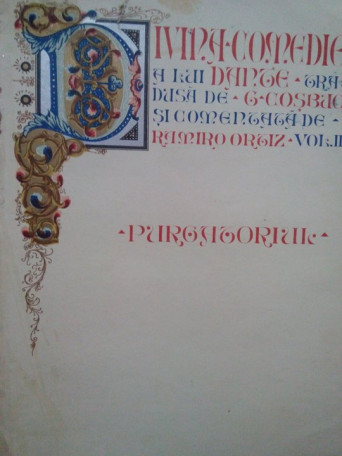 DIVINA·COMEDIE
A LUI DANTE·TRA
DUSĂ DE·G·COȘBUC
ȘI COMENTATĂ DE·
RAMIRO ORTIZ·VOL.II
·PURGATORIUL·